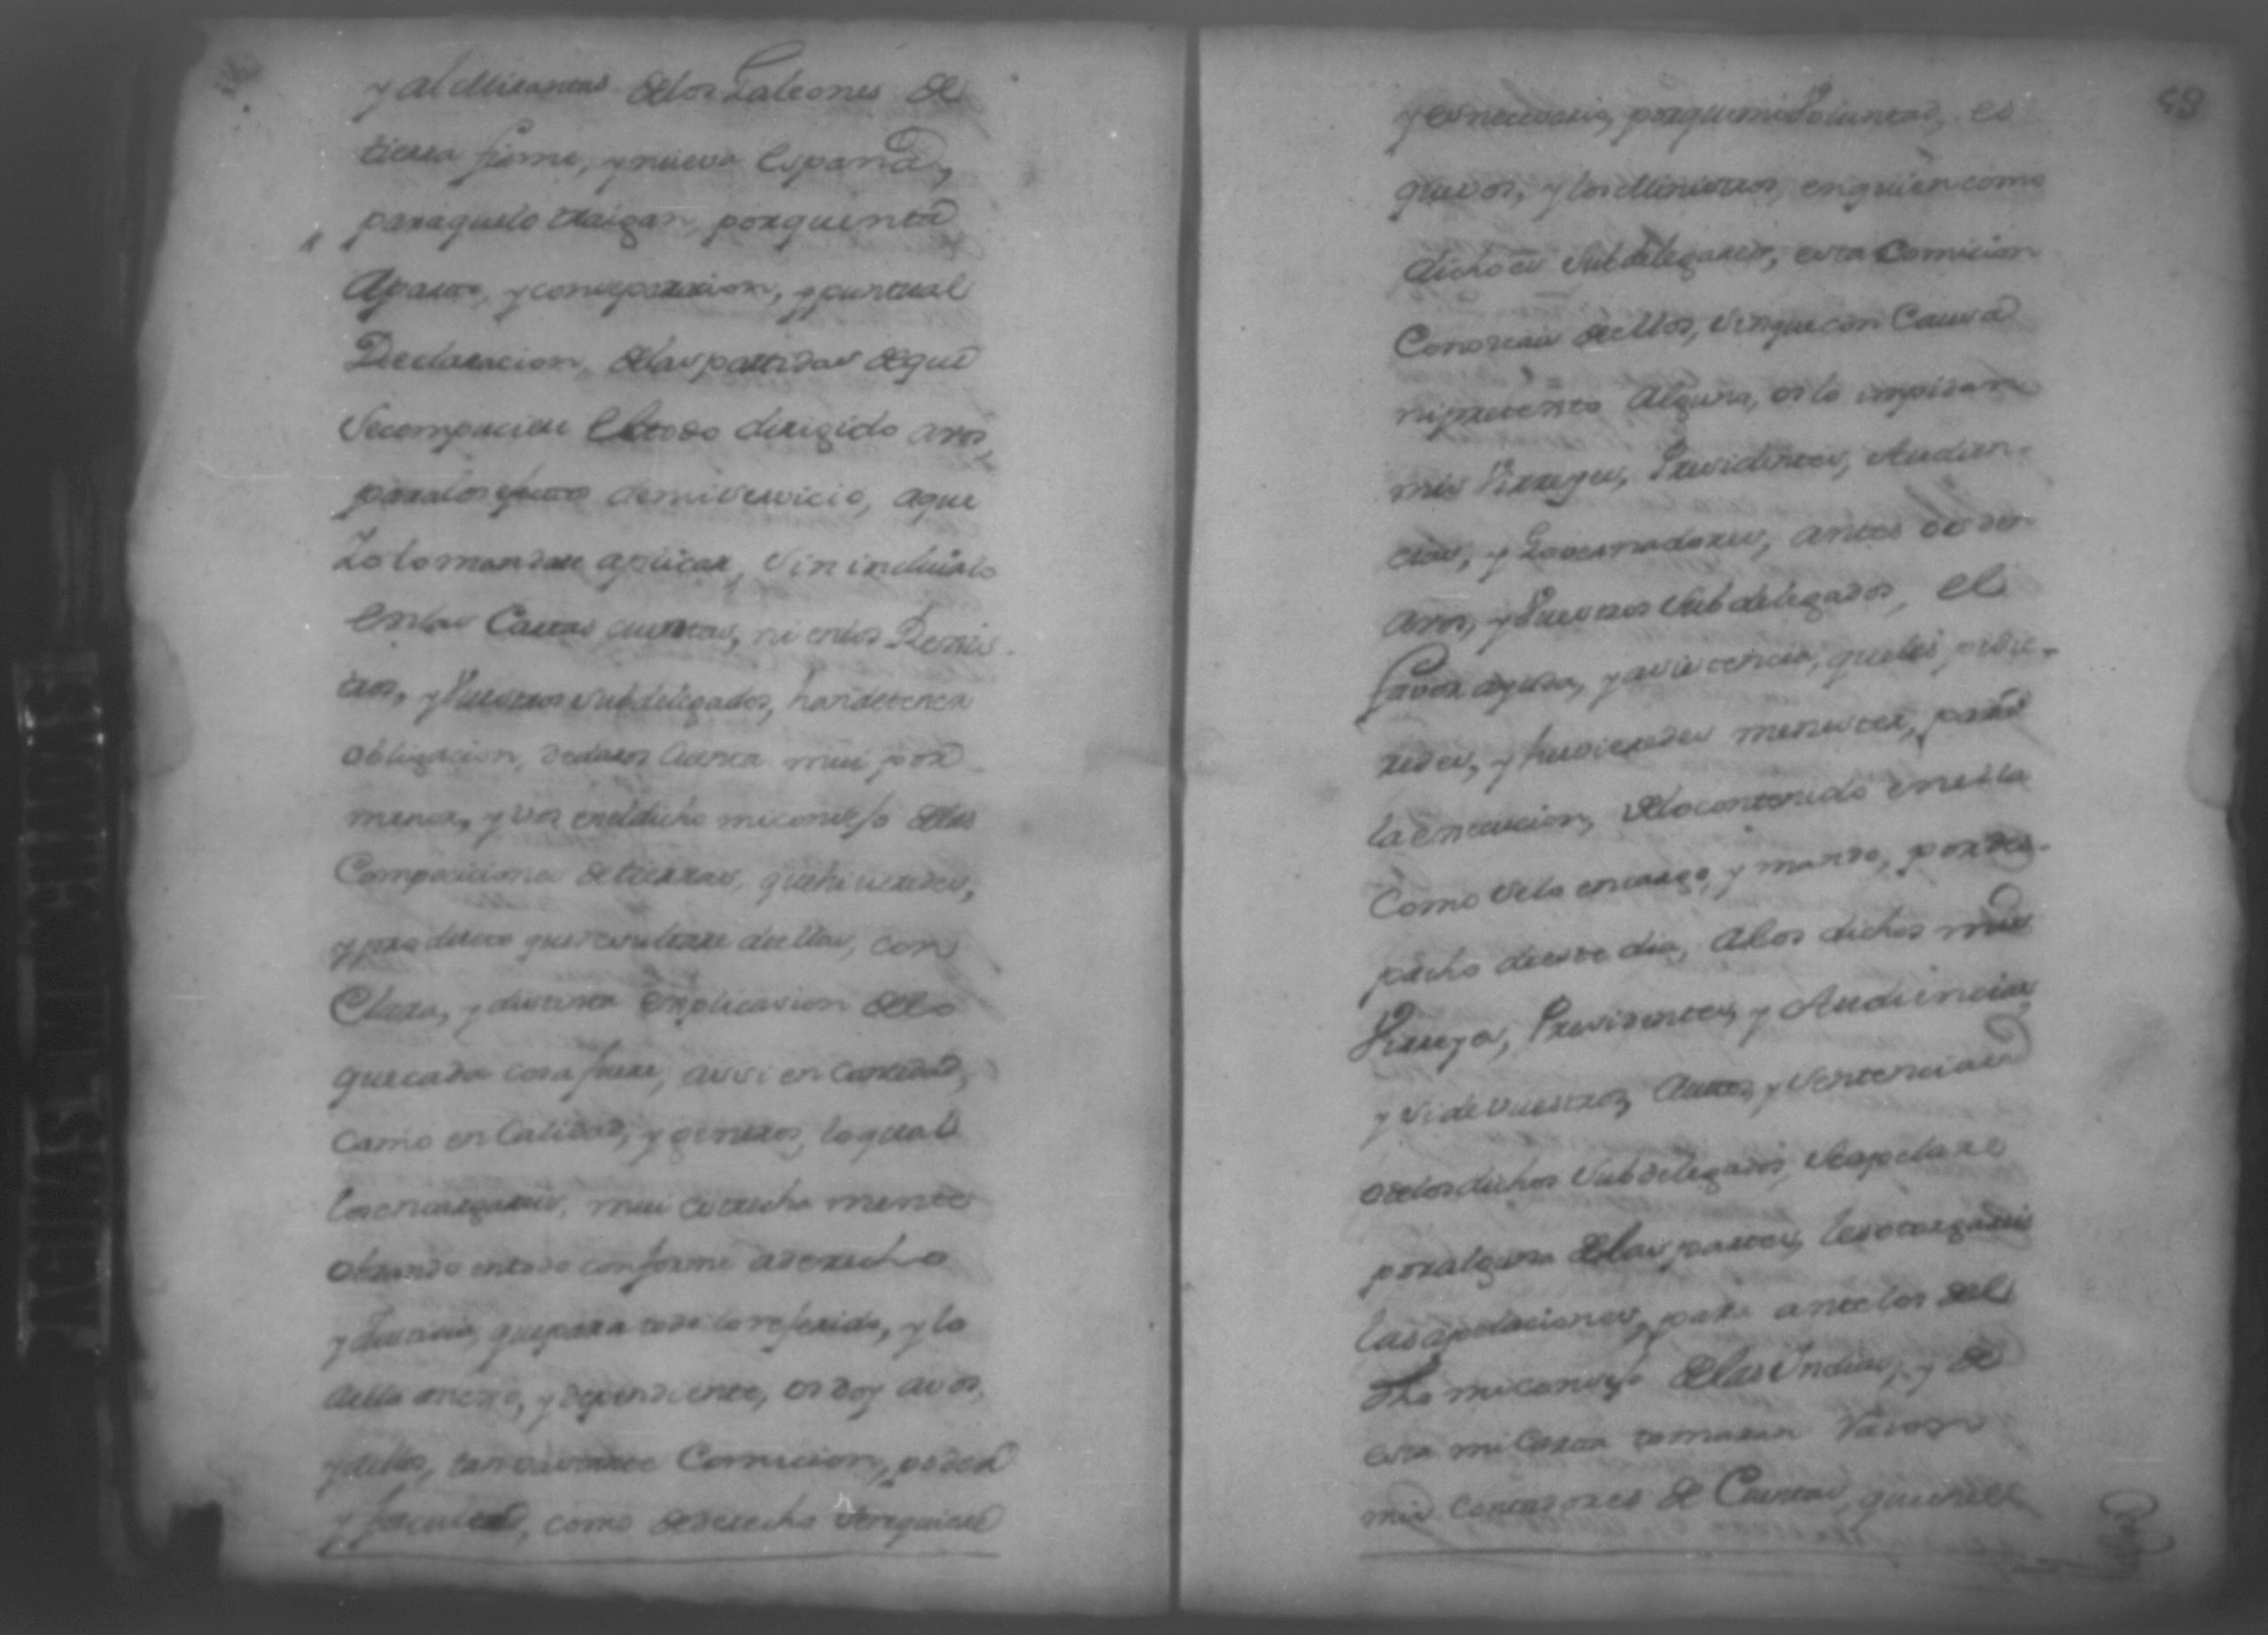 y al Mirantas delos Galeones de
tierra firme, y nueva España,
paraquelo traigan, porquenta
Aparte, y conseparacion, y puntual
Declaracion, delas partidas deque
secompuciere eltodo dirigido avos,
paralos efectos demiservicio, aque
Lo lomandare aplicar, sin incluirlo
enlas Cartas cuentas, ni enlos Rexis-
tros, y Vuestros subdelegados, handetener
obligacion, dedaros Cuenta mui por
menor, y vos eneldicho miconsejo delas
Composiciones detierras, quehicieredes,
y producto queresultare deellas, con
Clara, y distinta explicasion delo
quecada cosa fuere, assi en Cantidad,
Como en Calidad, y generos, loqual
losencargareis, mui estrecha mente
obrando entodo conforme aderecho
y Justicia, quepara todo loreferido, y lo
aello anexo, y dependiente, os doy avos,
y aellos, tan bastante Comicion, poder
y facultad, como dederecho serequiere
68
y esnecesario, porquemiVoluntad, es
quevos, y losMinistros, enquien como
dichoes subdelegareis, esta Comicion
Conozcais deellos, sinquecon Causa
nipretexto Alguno, oslo impidan
mis Virreyes, Presidentes, Audien-
cias, y Governadores, antes os den
avos, y Vuestros subdelegados, el
favor ayuda, y asistencia, queles pidie-
redes, y huvieredes menester, para
laexecucion, delocontenido enella
Como selo encargo, y mando, pordes-
pacho deeste dia, Alos dichos mis
Virreyes, Presidentes, y Audiencias,
y side vuestros, Autos, y sentencias
odelosdichos subdelegados, seapelare
poralguna delas partes, lesotorgareis
lasapelaciones, para antelos del
dho miconsejo delas Indias, y de
esta mi Carta tomaran rason
mis Contadores de Cuentas, que